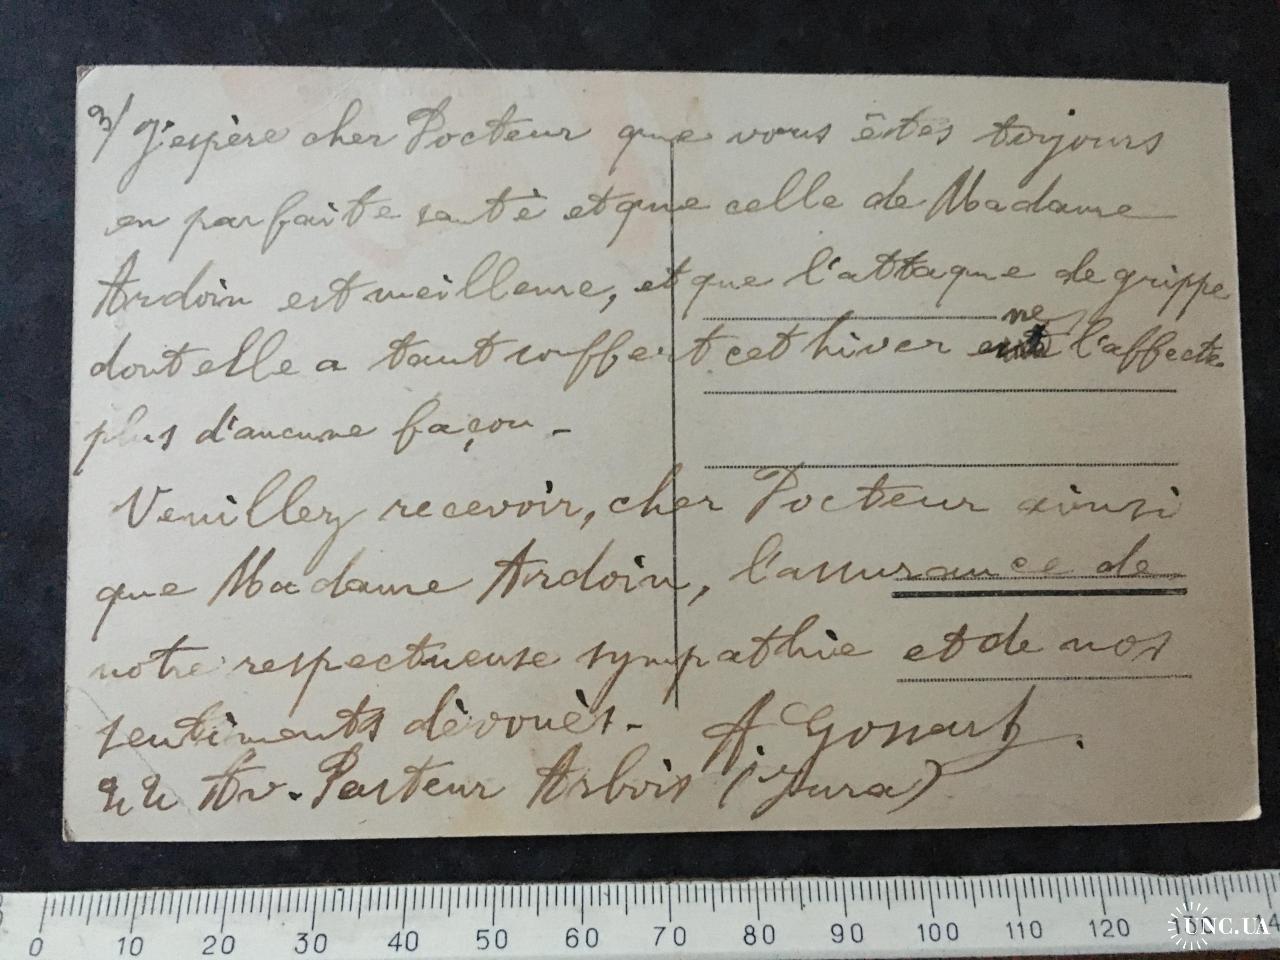 3/ J'espère cher Docteur que vous êtes toujours
en parfaite santé et que celle de Madame
Ardoin est meilleure, et que l'attaque de grippe
dont elle a tant souffert cet hiver ne l'affecte
plus d'aucune façon -
Veuillez recevoir, cher Docteur ainsi
que Madame Ardoin, l'assurance de
notre respectueuse sympathie et de nos
sentiments dévoués - A. Gossart.
22 Av. Pasteur Arbois (Jura)
0 10 20 30 40 50 60 70 80 90 100 110 120
UNC.UA